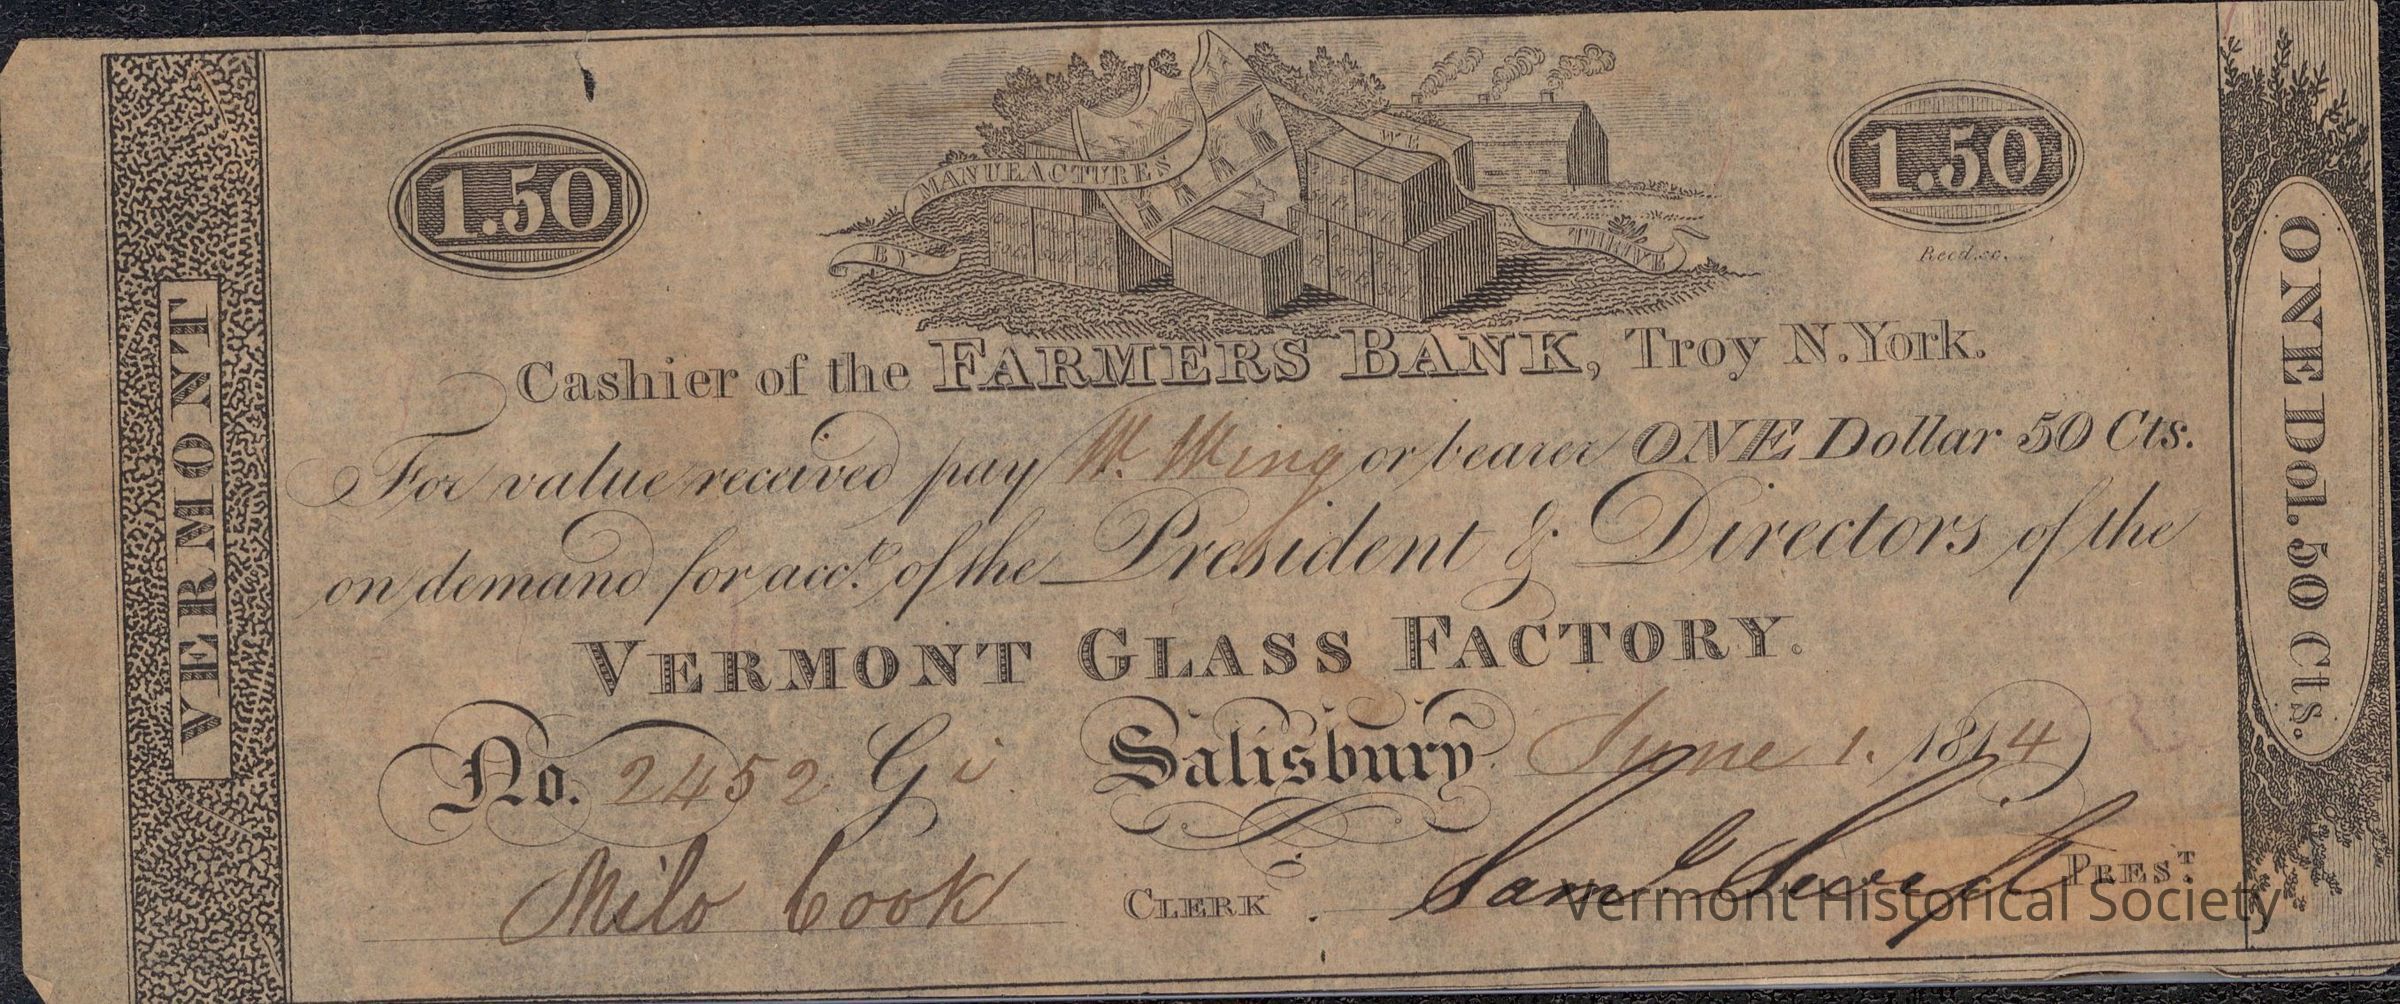 VERMONT
1.50
MANUFACTURES
WE
BY
THRIVE
1.50
Reed sc.
Cashier of the FARMERS BANK, Troy N. York.
For value received pay W. Wing or bearer ONE Dollar 50 Cts.
on demand for acct. of the President & Directors of the
VERMONT GLASS FACTORY.
No. 2452 G i Salisbury June 1. 1814
Milo Cook CLERK. Saml Swift PREST.
ONE Dol. 50 Cts.
Vermont Historical Society